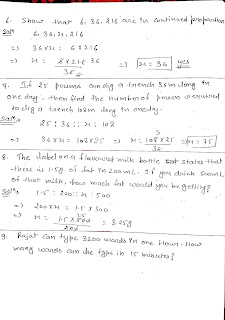 6. Show that 6, 36, 216 are in continued proportion
Solⁿ 6, 36, x, 216
=) 36 x x = 6 x 216
=) x = 6 x 216 / 36 =) x = 36 yes
7. If 25 persons can dig a trench 36m long in
one day. then find the number of person required
to dig a trench 108m long in oneday.
Solⁿ 25 : 36 :: x : 108
=) 36 x x = 108 x 25 =) x = 108 x 25 / 36 =) x = 75
8. The label on a flavoured milk bottle states that
there is 1.5g of fat in 200mL. If you drink 500mL
of that milk, how much fat would you be getting?
Solⁿ 1.5 : 200 :: x : 500
=) 200 x x = 1.5 x 500
=) x = 1.5 x 500 / 200 = 3.75g
9. Rajat can type 3200 words in one hour. How
many words can she type in 15 minutes?